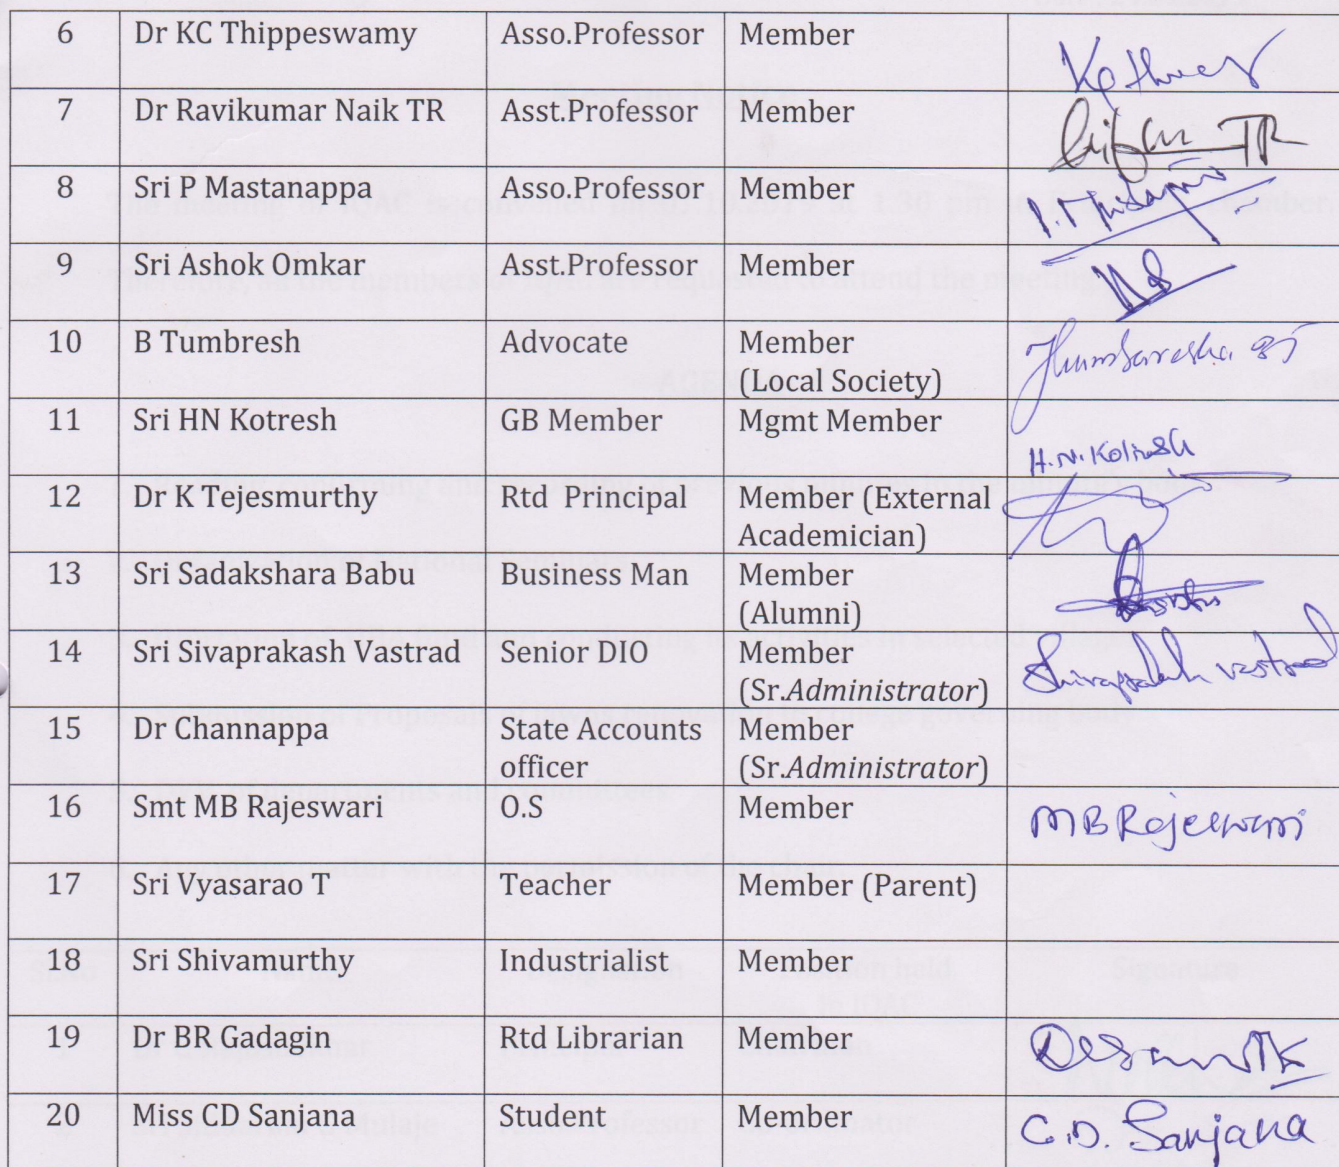 6 Dr KC Thippeswamy Asso.Professor Member
7 Dr Ravikumar Naik TR Asst.Professor Member TR
8 Sri P Mastanappa Asso.Professor Member
9 Sri Ashok Omkar Asst.Professor Member
10 B Tumbresh Advocate Member
(Local Society)
11 Sri HN Kotresh GB Member Mgmt Member
H.N.Kotresh
12 Dr K Tejesmurthy Rtd Principal Member (External
Academician)
13 Sri Sadakshara Babu Business Man Member
(Alumni)
14 Sri Sivaprakash Vastrad Senior DIO Member
(Sr.Administrator) vastrad
15 Dr Channappa State Accounts Member
officer (Sr.Administrator)
16 Smt MB Rajeswari O.S Member MB Rajeswari
17 Sri Vyasarao T Teacher Member (Parent)
18 Sri Shivamurthy Industrialist Member
19 Dr BR Gadagin Rtd Librarian Member
20 Miss CD Sanjana Student Member C.D. Sanjana